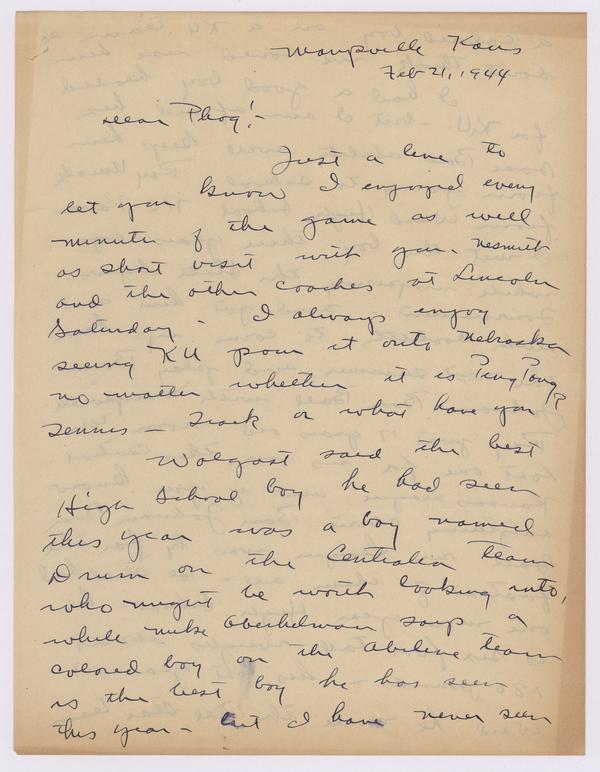 Marysville Kans
Feb 21, 1944
Dear Phog!-
Just a line to
let you know I enjoyed every
minute of the game as well
as short visit with you - Nesmith
and the other coaches at Lincoln
Saturday - I always enjoy
seeing KU pour it onto Nebraska
no matter whether it is Ping Pong,
Tennis - Track or what have you?
Wolgast said the best
High School boy he had seen
this year was a boy named
Drum on the Centralia Team
who might be worth looking into,
while Mike Oberhelman says a
colored boy on the Abilene team
is the best boy he has seen
this year - but I have never seen